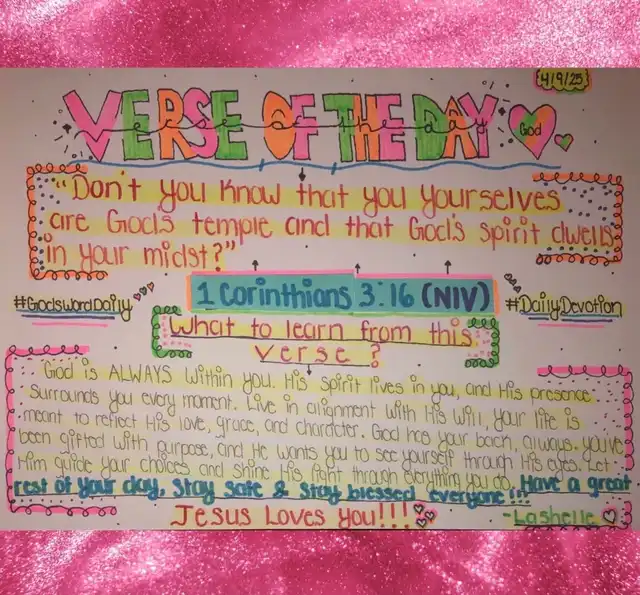 4/9/25
VERSE OF THE DAY
verse of the day
God
"Don't you know that you yourselves
are God's temple and that God's spirit dwells
in your midst?"
1 Corinthians 3:16 (NIV)
#GodsWordDaily
#DailyDevotion
What to learn from this
verse?
God is ALWAYS within you. His Spirit lives in you, and His presence
surrounds you every moment. Live in alignment with His will, your life is
meant to reflect His love, grace, and character. God has your back, always. you've
been gifted with purpose, and He wants you to see yourself through His eyes. Let
Him guide your choices and shine His light through everything you do. Have a great
rest of your day, Stay safe & Stay blessed everyone!!!
Jesus Loves you!!!
-Lashelle